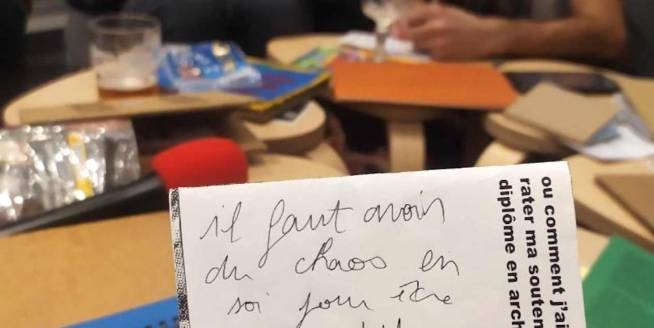 il faut avoir
du chaos en
soi pour être
ou comment j'ai
rater ma souten
diplôme en arch